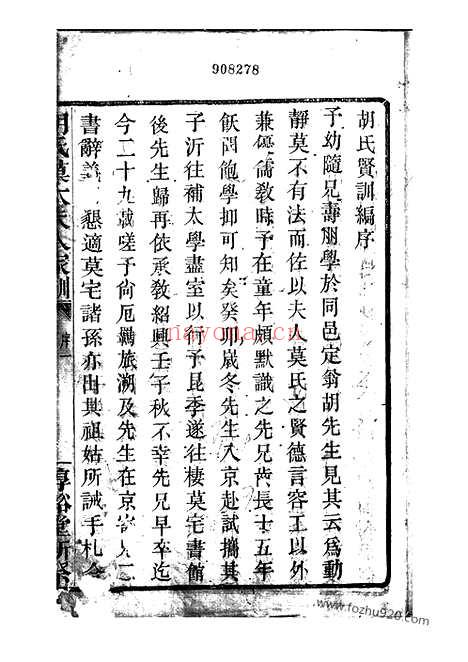 908278
胡氏賢訓編序
予幼隨兄壽朋學於同邑定翁胡先生見其云為動
靜莫不有法而佐以夫人莫氏之賢德言容工以外
兼優儒教時予在童年頗默識之先兄齒長士五年
飫聞飽學抑可知矣癸卯歲冬先生入京赴試攜其
子沂往補太學盡室以行予昆季遂往棲莫宅書館
後先生歸再依承教紹興壬子秋不幸先兄早卒迄
今二十九載嗟予尚厄羈旅溯及先生在京寄兄
書辭 懇適莫宅諸孫亦由其祖姑所誡手札
胡氏莫太夫人家訓
序一
nayona.cn
www.fozhu920.com